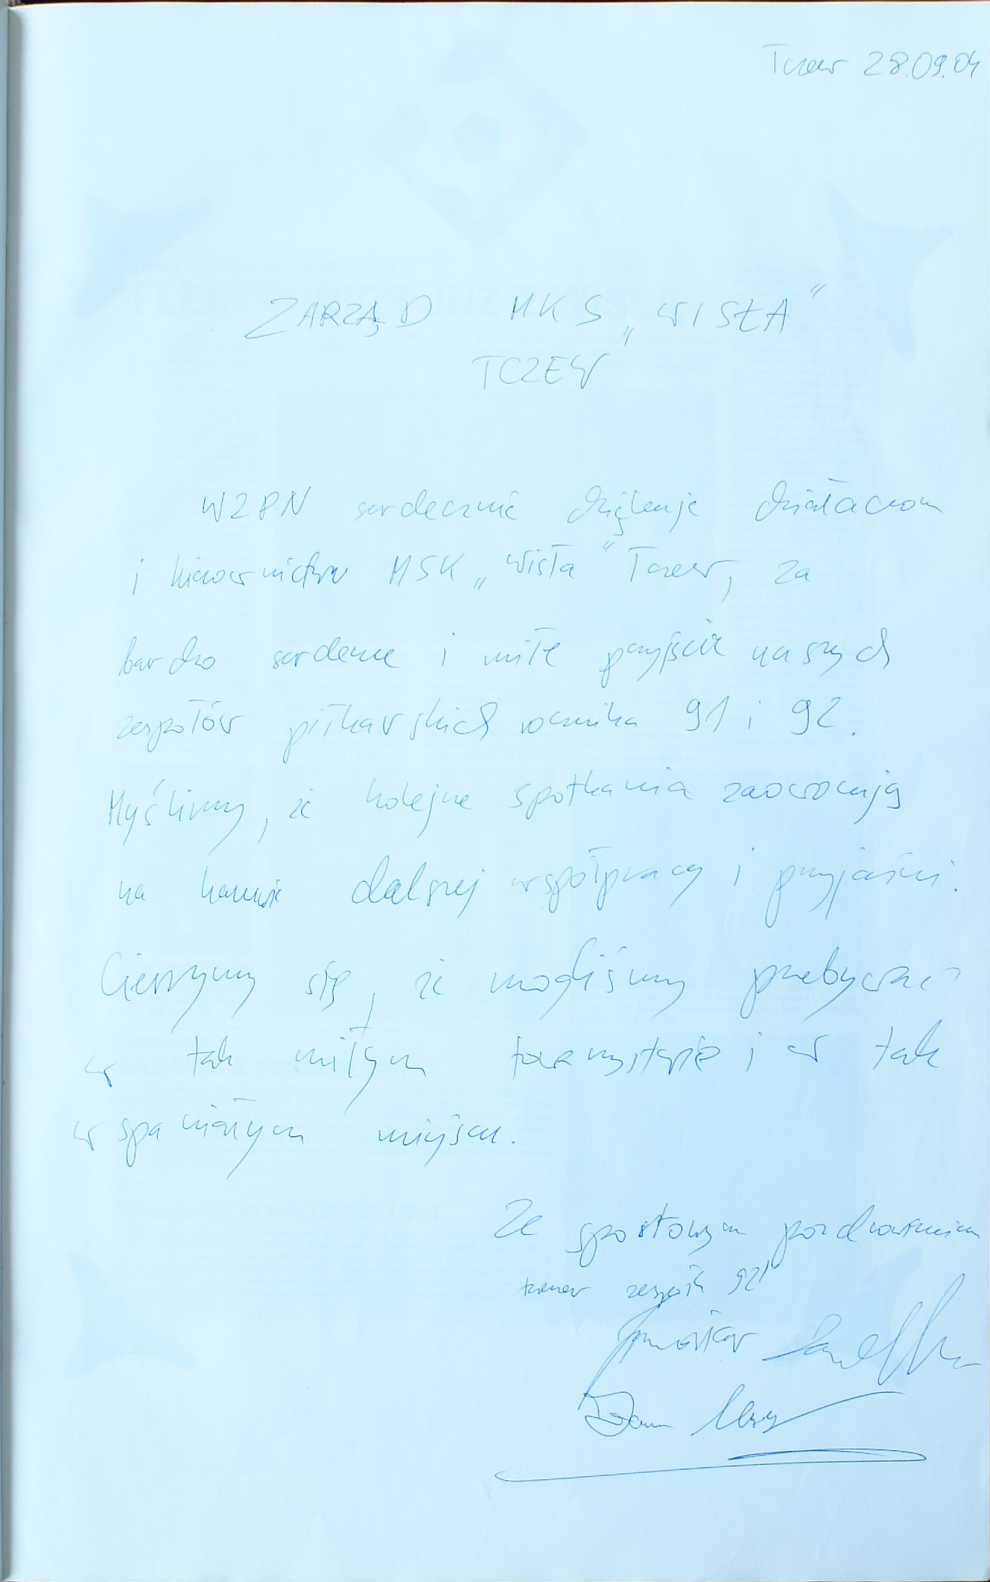 Tczew 28.09.04
ZARZĄD MKS „WISŁA”
TCZEW
WZPN serdecznie dziękuje działaczom
i kierownictwu MSK „Wisła” Tczew, za
bardzo serdeczne i miłe przyjęcie naszych
zespołów piłkarskich rocznika 91 i 92.
Myślimy, że kolejne spotkania zaowocują
na kanwie dalszej współpracy i przyjaźni.
Cieszymy się, że mogliśmy przebywać
w tak miłym towarzystwie i w tak
wspaniałym miejscu.
Ze sportowym pozdrowieniem
trener zespołu 92